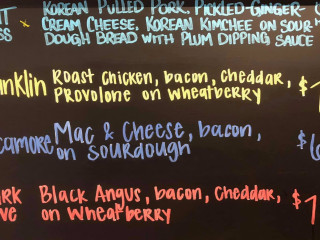 Korean Pulled Pork, Pickled-Ginger-
Cream Cheese, Korean Kimchee on Sour
Dough Bread with Plum Dipping Sauce
Roast Chicken, bacon, cheddar, $
Provolone on Wheatberry
Mac & Cheese, bacon, $
on Sourdough
Black Angus, bacon, cheddar, $
on Wheatberry